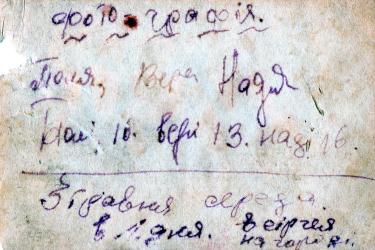 фото-графія.
Поля, Вера Надя
Полі 10. вері 13. наді 16.
3 травня середа
в 1 дня. в сірчея
на городі.